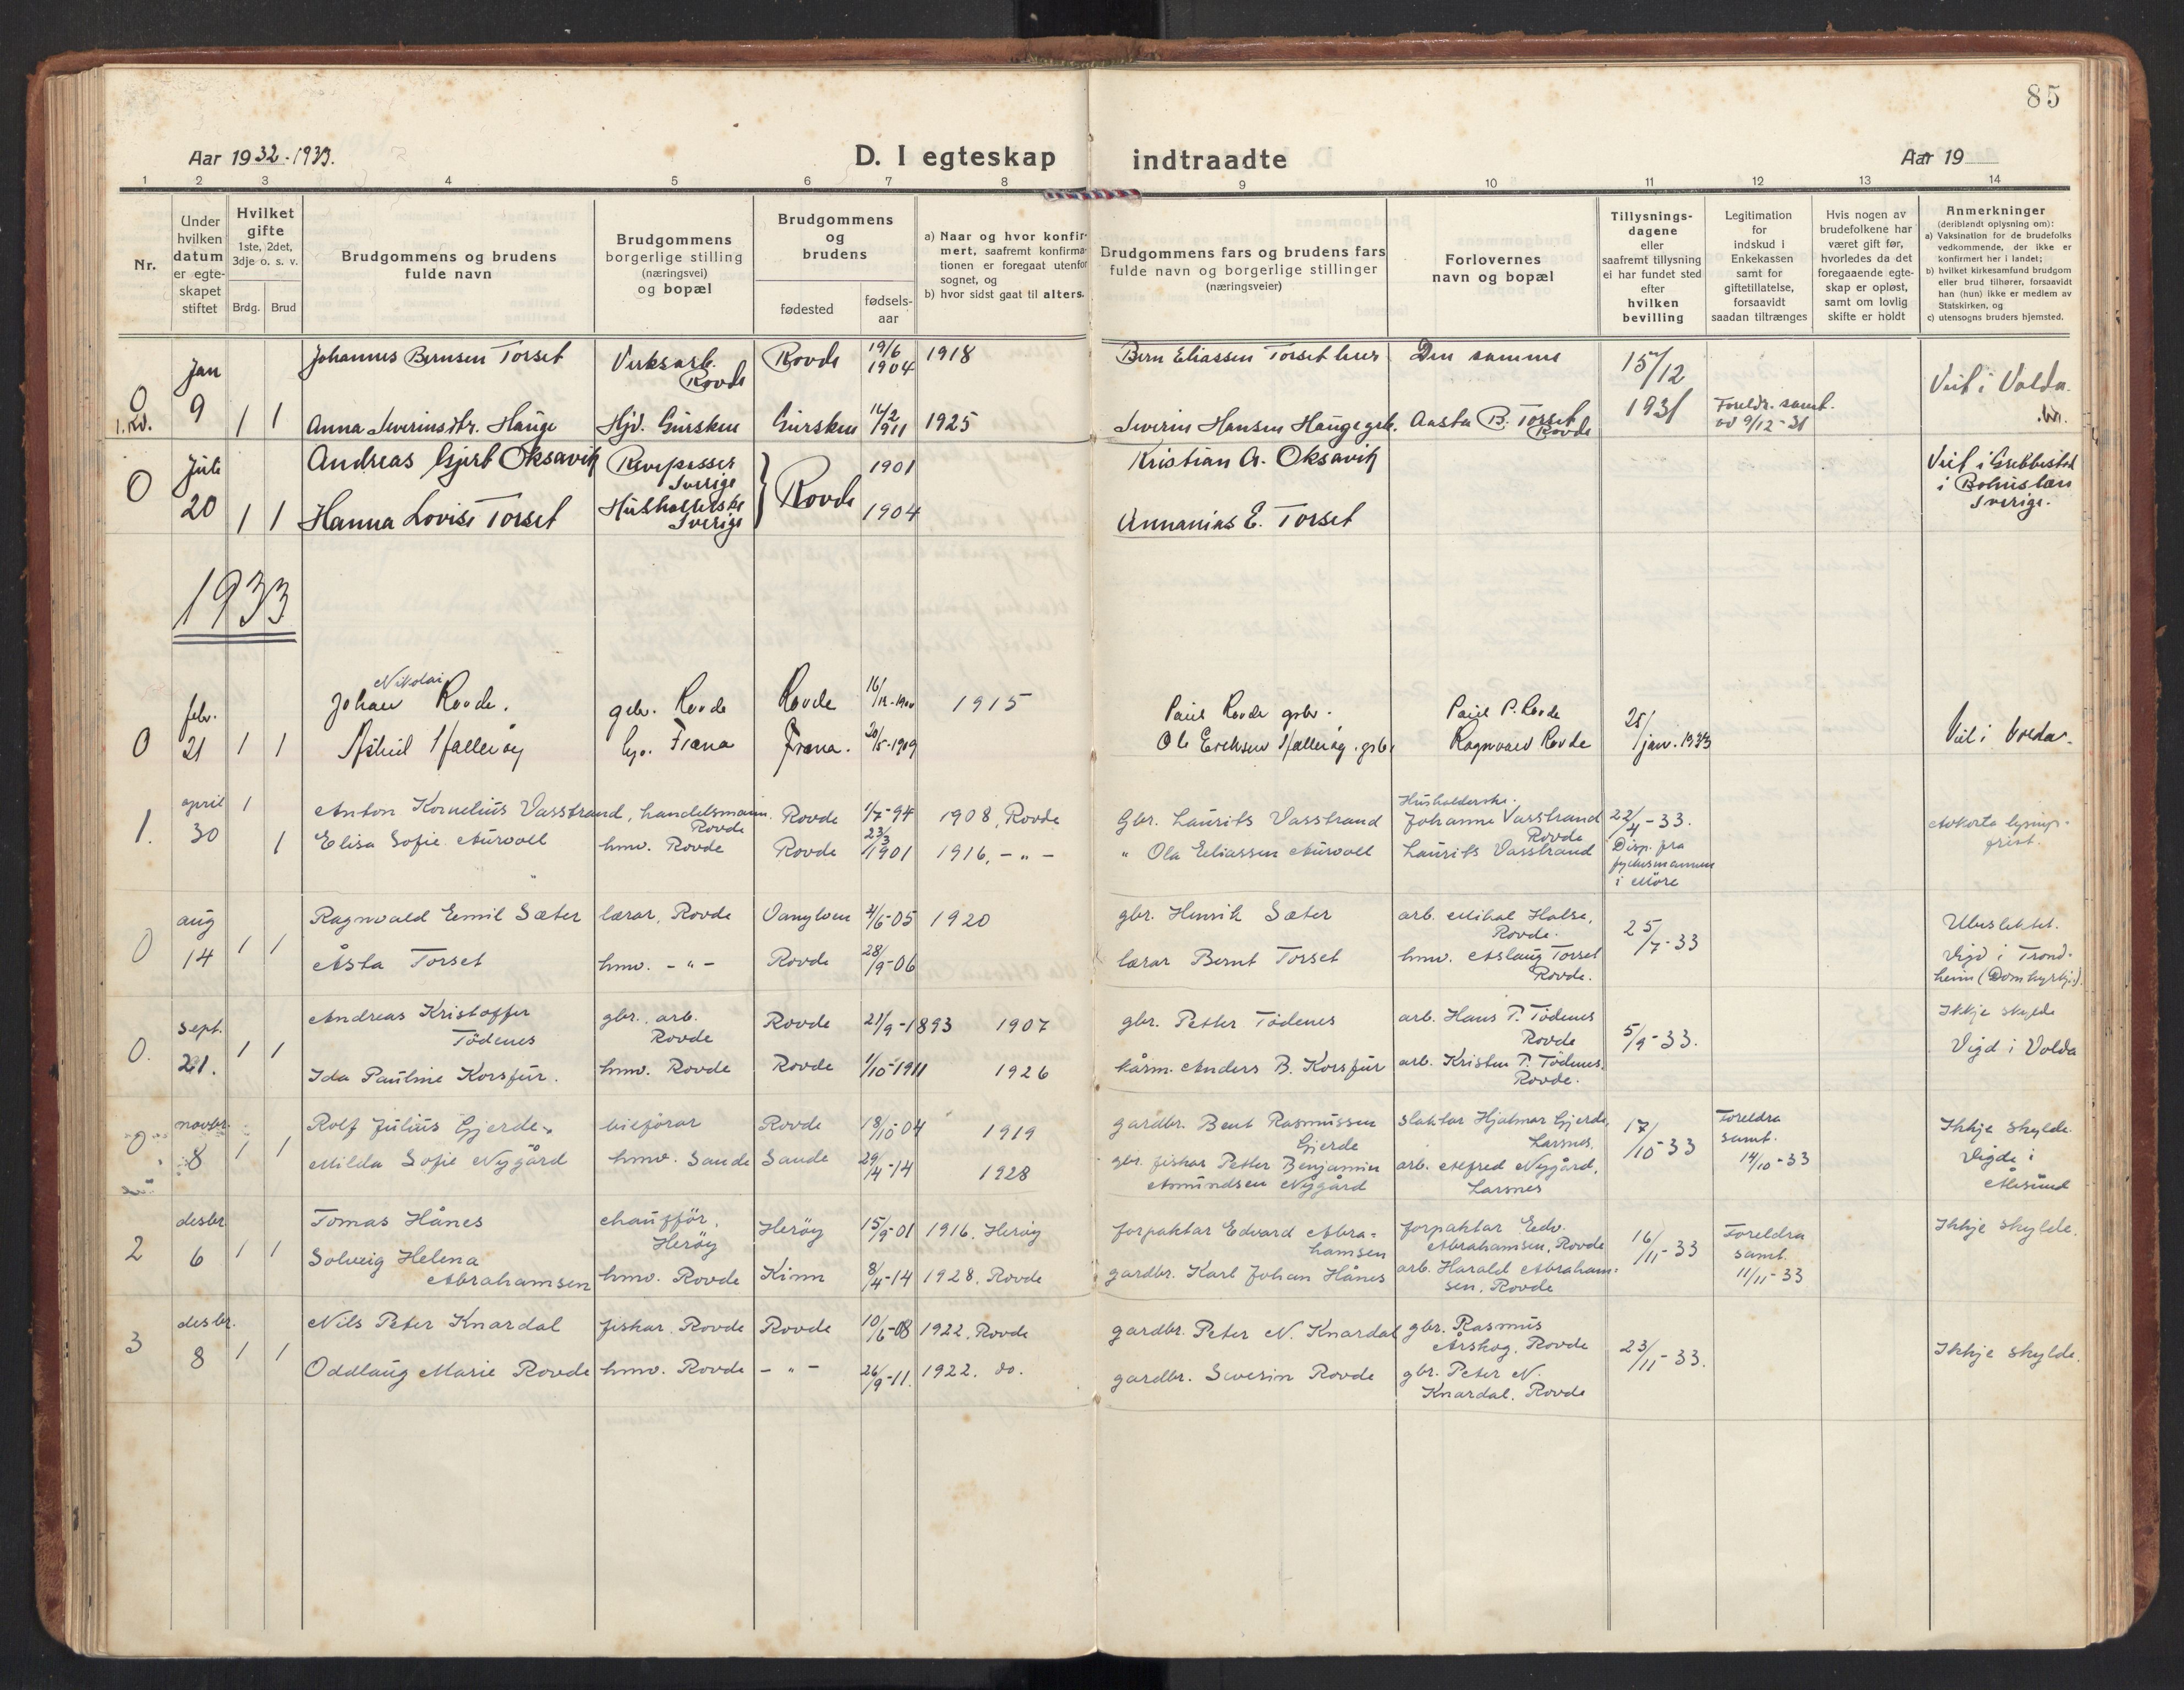 85
Aar 1932-1933.
D. I egteskap indtraadte
Aar 19
1 2 3 4 5 6 7 8 9 10 11 12 13 14
Nr.
Under hvilken datum er egteskapet stiftet
Hvilket gifte 1ste, 2det, 3dje o. s. v.
Brdg. Brud
Brudgommens og brudens fulde navn
Brudgommens borgerlige stilling (næringsvei) og bopæl
Brudgommens og brudens
fødested fødsels-aar
a) Naar og hvor konfirmert, saafremt konfirmationen er foregaat utenfor sognet, og
b) hvor sidst gaat til alters.
Brudgommens fars og brudens fars fulde navn og borgerlige stillinger (næringsveier)
Forlovernes navn og bopæl
Tillysningsdagene eller saafremt tillysning ei har fundet sted efter hvilken bevilling
Legitimation for indskud i Enkekassen samt for giftetillatelse, forsaavidt saadan tiltrænges
Hvis nogen av brudefolkene har været gift før, hvorledes da det foregaaende egteskap er opløst, samt om lovlig skifte er holdt
Anmerkninger (deriblandt oplysning om):
a) Vaksination for de brudefolks vedkommende, der ikke er konfirmert her i landet;
b) hvilket kirkesamfund brudgom eller brud tilhører, forsaavidt han (hun) ikke er medlem av Statskirken, og
c) utensogns bruders hjemsted.
Jan Johannes Bernsen Torset Verksarb. Rovde Rovde 19/6 1904 1918 Bern Eliassen Torset Den samme 15/12
0 9 1 1 Anna Severinsdtr. Hauge Hjv. Gursken Gursken 14/2 1911 1925 Severin Hansen Hauge grb. Aasta B. Torset Rovde 1931 Foreldr. samt. 9/12-31 Viet i Volda.
Juli Andreas Gjert Oksavik Revepasser Sverige 1901 Kristian A. Oksavik Viet i Grebbestad
0 20 1 1 Hanna Lovise Torset Husholderske Sverige Rovde 1904 Annanias E. Torset i Bohuslän Sverige.
1933
febr. Johan Nikolai Rovde. gbr. Rovde Rovde 16/12-1900 1915 Paul Rovde grbr. Paul P. Rovde 25/
0 21 1 1 Astrid Fræna Fræna. 20/5-1909 Ole Eriksen Ragnvald Rovde jan. 1933 Viet i Volda.
april 1 Anton Kornelius Vasstrand, handelsmann. Rovde Rovde 1/7-94 1908, Rovde Gbr. Laurits Vasstrand Husholderske. Johanne Vasstrand Rovde 22/4-33.
1. 30 1 Elisa Sofie Aurvoll hmv. Rovde Rovde 23/3 1901 1916, - " - " Ola Eliassen Aurvoll Laurits Vasstrand Disp. fra fylkesmannen i Möre Avkorta lysings-frist.
aug Ragnvald Emil Sæter lærar, Rovde Vanylven 4/6-05 1920 gbr. Henrik Sæter arb. Mikal Halse, Rovde. 25/7-33 Utuslektet.
0 14 1 1 Åsta Torset hmv. - " - Rovde 28/9-06 lærar Bernt Torset hmv. Aslaug Torset Rovde. Vigd i Trondheim (Domkyrkja).
sept. Andreas Kristoffer Tödenes gbr., arb. Rovde Rovde 21/9-1893 1907 gbr. Petter Tödenes arb. Hans P. Tödenes Rovde 5/9-33. Ikkje skylde
0. 21. 1 1 Ida Pauline Korsfur. hmv. Rovde Rovde 1/10-1911 1926 kårm. Anders B. Korsfur arb. Kristen P. Tödenes, Rovde. Vigd i Volda
novbr. Rolf Julius Gjerde bilförar Rovde 18/10-04 1919 gardbr. Bent Rasmussen Gjerde slaktar Hjalmar Gjerde, Larsnes. 17/10-33 Foreldra samt. 14/10-33 Ikkje skylde.
0 8 1 1 Milda Sofie Nygård hmv. Sande Sande 29/4-14 1928 gbr. fiskar Petter Benjamin Amundsen Nygård arb. Alfred Nygård, Larsnes Vigde i Ålesund
desbr Tomas Hånes chaufför, Heröy Heröy 15/9-01 1916, Heröy forpaktar Edvard Abrahamsen forpaktar Edv. Abrahamsen, Rovde 16/11-33 Foreldra samt. 11/11-33 Ikkje skylde.
2 6 1 1 Solveig Helena Abrahamsen hmv. Rovde Kinn 8/4-14 1928, Rovde gardbr. Karl Johan Hånes arb. Harald Abrahamsen, Rovde
desbr. Nils Peter Knardal fiskar, Rovde Rovde 10/6-08 1922, Rovde gardbr. Peter N. Knardal gbr. Rasmus Årskog, Rovde 23/11-33. Ikkje skylde.
3 8 1 1 Oddlaug Marie Rovde hmv. Rovde - " - 26/9-11. 1922. do. gardbr. Severin Rovde gbr. Peter N. Knardal, Rovde